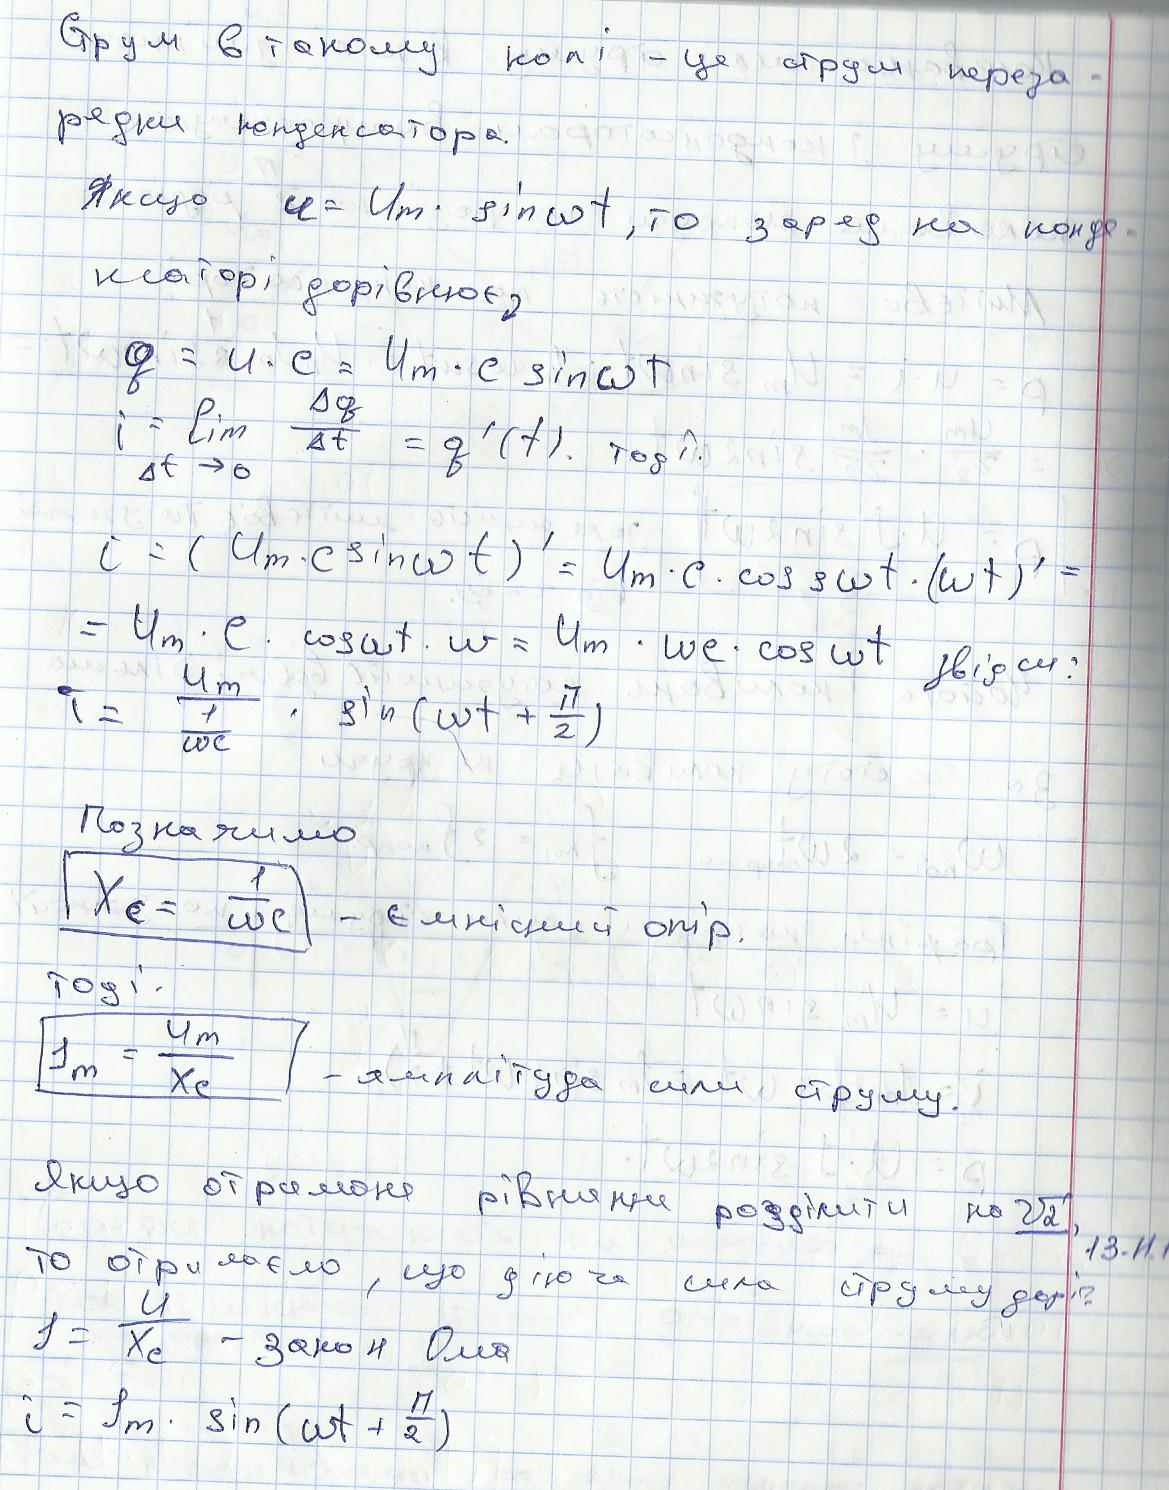 Струм в такому колі - це струм переза-
рядки конденсатора.
Якщо u = Um · sinωt, то заряд на конде-
нсаторі дорівнює
q = u · c = Um · c sinωt
i = lim Δq/Δt = q'(t). тоді:
Δt → 0
i = (Um · c sinωt)' = Um · c · cosωt · (ωt)' =
= Um · c · cosωt · w = Um · ωc · cosωt звідси:
i = Um / (1/ωc) · sin(ωt + π/2)
Позначимо
Xc = 1/ωc - ємнісний опір.
тоді:
Im = Um/Xc - амплітуда сили струму.
Якщо отримане рівняння розділити на √2,
то отримаємо, що діюча сила струму дорі:
I = U/Xc - закон Ома
i = Im · sin(ωt + π/2)